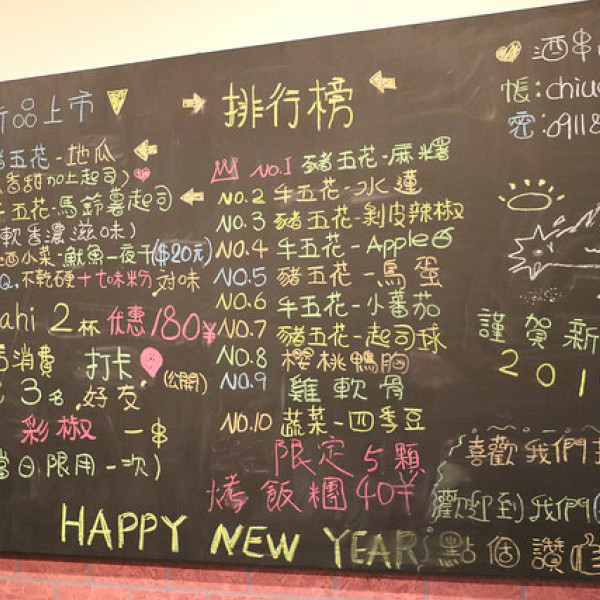 品上市
排行榜
酒串
帳:chiu
密:09118
豬五花-地瓜
(香甜加上起司)
五花-馬鈴薯起司
軟香濃滋味)
酒小菜-魷魚一夜干($20元)
Q,不乾硬十七味粉 對味
ahi 2杯 優惠180¥
消費 打卡
(公開)
3名 好友
彩椒 一串
當日限用一次)
NO.1 豬五花-麻糬
NO.2 牛五花-水蓮
NO.3 豬五花-剝皮辣椒
NO.4 牛五花-Apple
NO.5 豬五花-鳥蛋
NO.6 牛五花-小蕃茄
NO.7 豬五花-起司球
NO.8 櫻桃鴨胸
NO.9 雞軟骨
NO.10 蔬菜-四季豆
限定5顆
烤飯糰40¥
謹賀新
201
喜歡我們
歡迎到我們
點個讚
HAPPY NEW YEAR